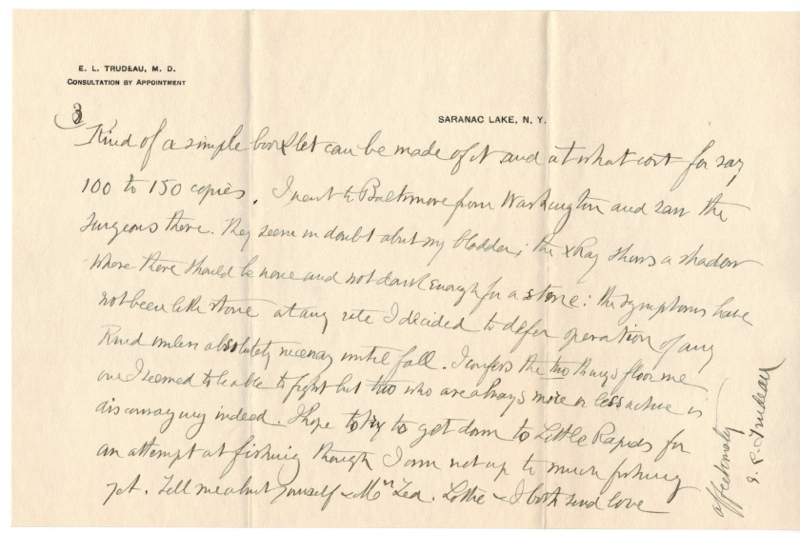 E. L. TRUDEAU, M. D.
CONSULTATION BY APPOINTMENT
SARANAC LAKE, N. Y.
3
Kind of a simple booklet can be made of it and at what cost for say
100 to 150 copies. I went to Baltimore from Washington and saw the
surgeons there. They seem in doubt about my bladder; the x Ray shows a shadow
where there should be none and not dark enough for a stone: the symptoms have
not been like stone at any rate I decided to defer operation of any
Kind unless absolutely necessary until fall. I confess the two things floor me
one I seemed to be able to fight but two who are always more or less active is
discouraging indeed. I hope to try to get down to Little Rapids for
an attempt at fishing though I am not up to much fishing
yet. Tell me about yourself & Mrs Lea. Lottie & I both send love
affectionately
E. L. Trudeau